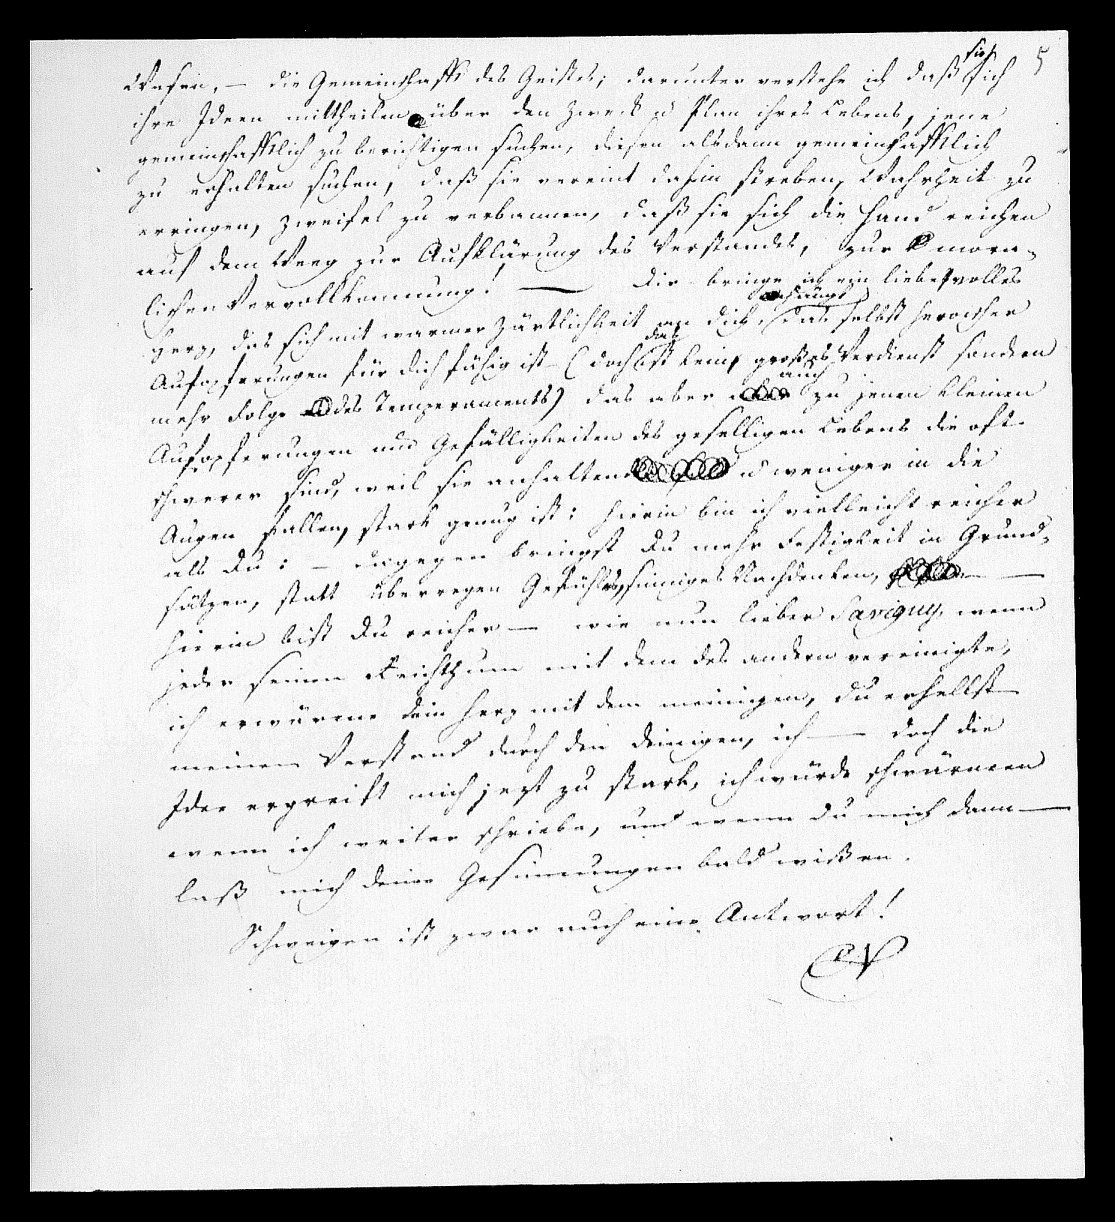 Wesen, — die Gemeinschafft des Geistes; darunter verstehe ich daß sie sich 5
ihre Ideen mittheilen über den Zweck u Plan ihres Lebens, jene
gemeinschafftlich zu berichtigen suchen, diesen alsdann gemeinschafftlich
zu erhalten suchen, daß sie vereint dahin streben, Wahrheit zu
erringen, Zweifel zu verbannen, daß sie sich die Hand reichen
auf dem Weeg zur Aufklärung des Verstandes, zur mora-
lischen Vervollkommnung! — Dir bringe ich ein liebevolles
Herz, das sich mit warmer Zärtlichkeit an dich anhängt, das selbst heroischer
Aufopferungen für dich fähig ist (doch dies ist kein großes Verdienst sondern
mehr Folge des Temperaments) das aber auch zu jenen kleinen
Aufopferungen und Gefälligkeiten des geselligen Lebens die oft
schwerer sind, weil sie anhaltend u weniger in die
Augen fallen, stark genug ist; hierin bin ich vielleicht reicher
als Du: — dagegen bringst Du mehr Festigkeit in Grund-
sätzen, statt überregen Gefühls, sinniges Nachdenken, —
hierin bist Du reicher — wie nun lieber Savigny, wenn
jeder seinen Reichthum mit dem des andern vereinigte,
ich erwärme dein Herz mit dem meinigen, du erhellst
meinen Verstand durch den deinigen, ich — doch die
Idee ergreift mich jezt zu stark, ich würde schwärmen
wenn ich weiter schriebe, und wenn du mich dann —
laß mich deine Gesinnungen bald wißen.
Schweigen ist zwar auch eine Antwort!